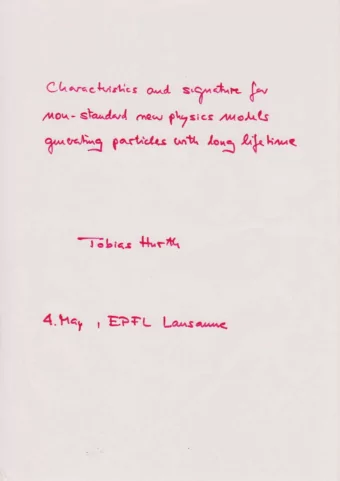 Characteristics and signature for
non-standard new physics models
generating particles with long lifetime
Tobias Hurth
4. May , EPFL Lausanne